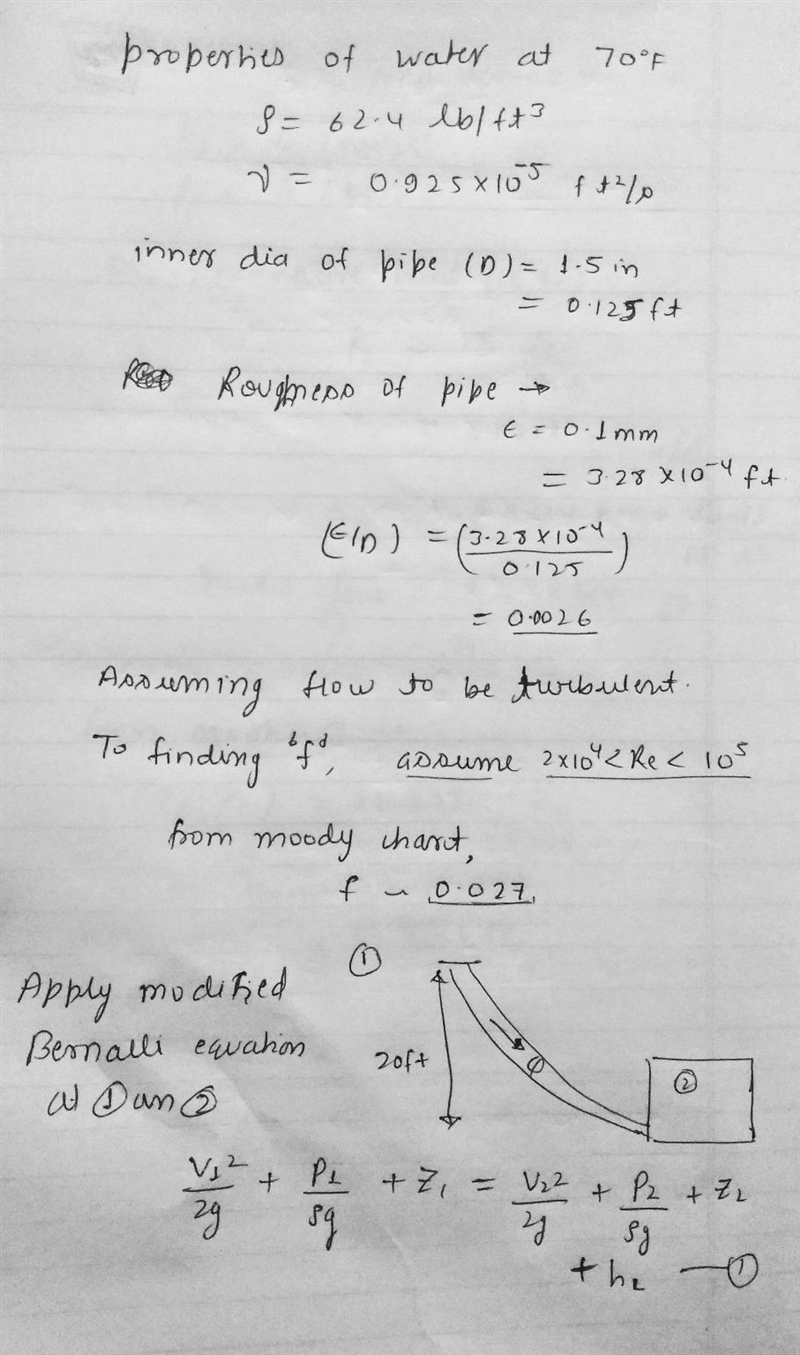 properties of water at 70°F
ρ = 62.4 lb/ft³
ν = 0.925×10⁻⁵ ft²/s
inner dia of pipe (D) = 1.5 in
= 0.125 ft
Roughness of pipe →
ϵ = 0.1 mm
= 3.28 ×10⁻⁴ ft
(ϵ/D) = (3.28×10⁻⁴ / 0.125)
= 0.0026
Assuming flow to be turbulent.
To finding 'f', assume 2×10⁴ < Re < 10⁵
from moody chart,
f ~ 0.027,
①
Apply modified
Bernalli equation
at ① an ②
20ft
②
V₁²/2g + P₁/ρg + Z₁ = V₂²/2g + P₂/ρg + Z₂
+ h_L —①